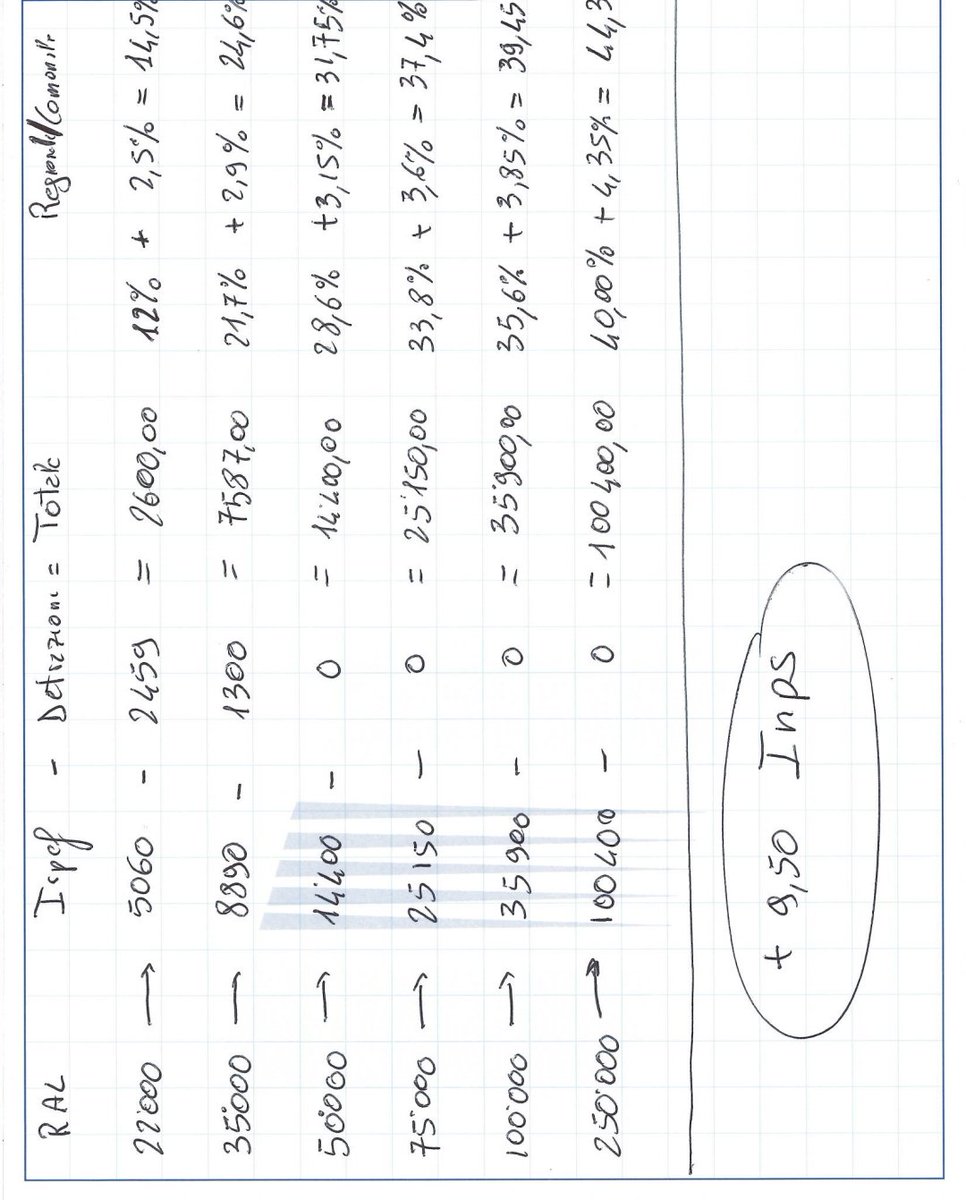 RAL Irpef - Detrazioni = Totale Regionale/Comunale
22'000 → 5060 - 2459 = 2600,00 12% + 2,5% = 14,5%
35'000 — 8890 - 1300 = 7587,00 21,7% + 2,9% = 24,6%
50'000 → 14'400 - 0 = 14'400,00 28,6% +3,15% = 31,75%
75'000 → 25 150 - 0 = 25'150,00 33,8% + 3,6% = 37,4%
100'000 → 35 900 - 0 = 35'900,00 35,6% + 3,85% = 39,45
250'000 → 100 400 - 0 = 100 400,00 40,00% + 4,35% = 44,3
+ 9,50 Inps